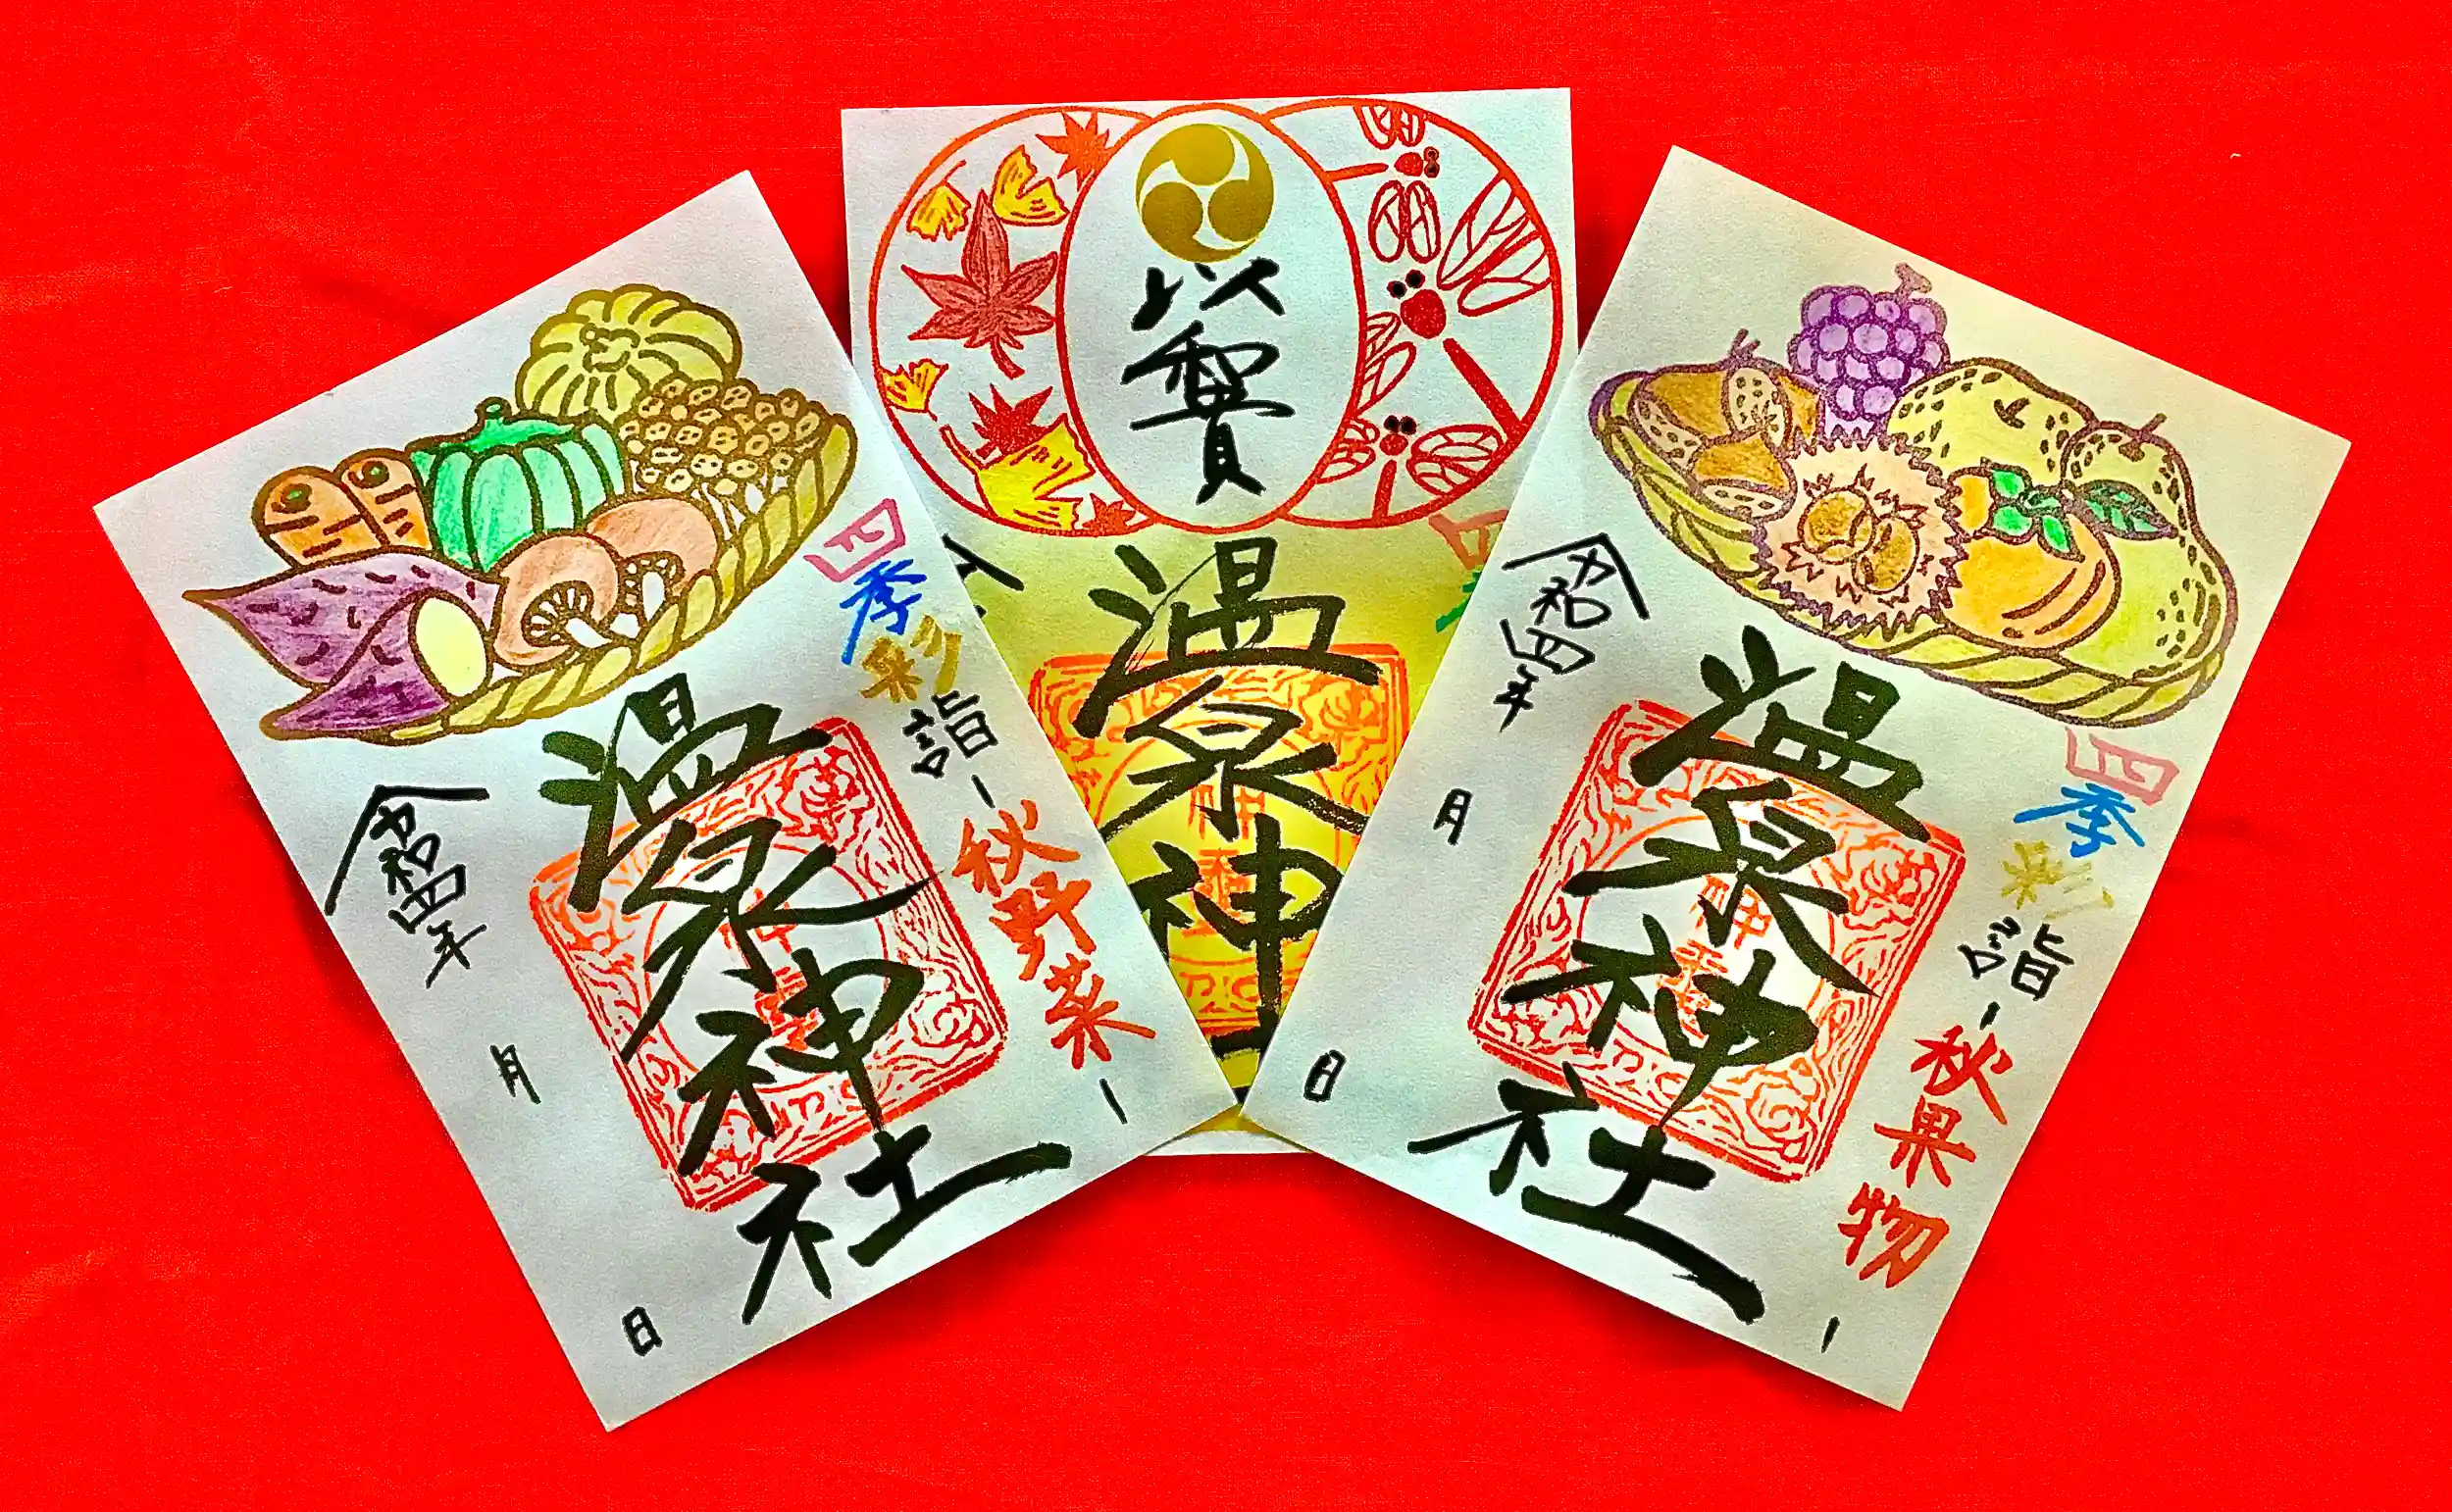 四季彩詣-秋野菜-
温泉神社
令和四年 月 日
以賀
温泉神
四季彩詣-秋果物-
温泉神社
令和四年 月 日